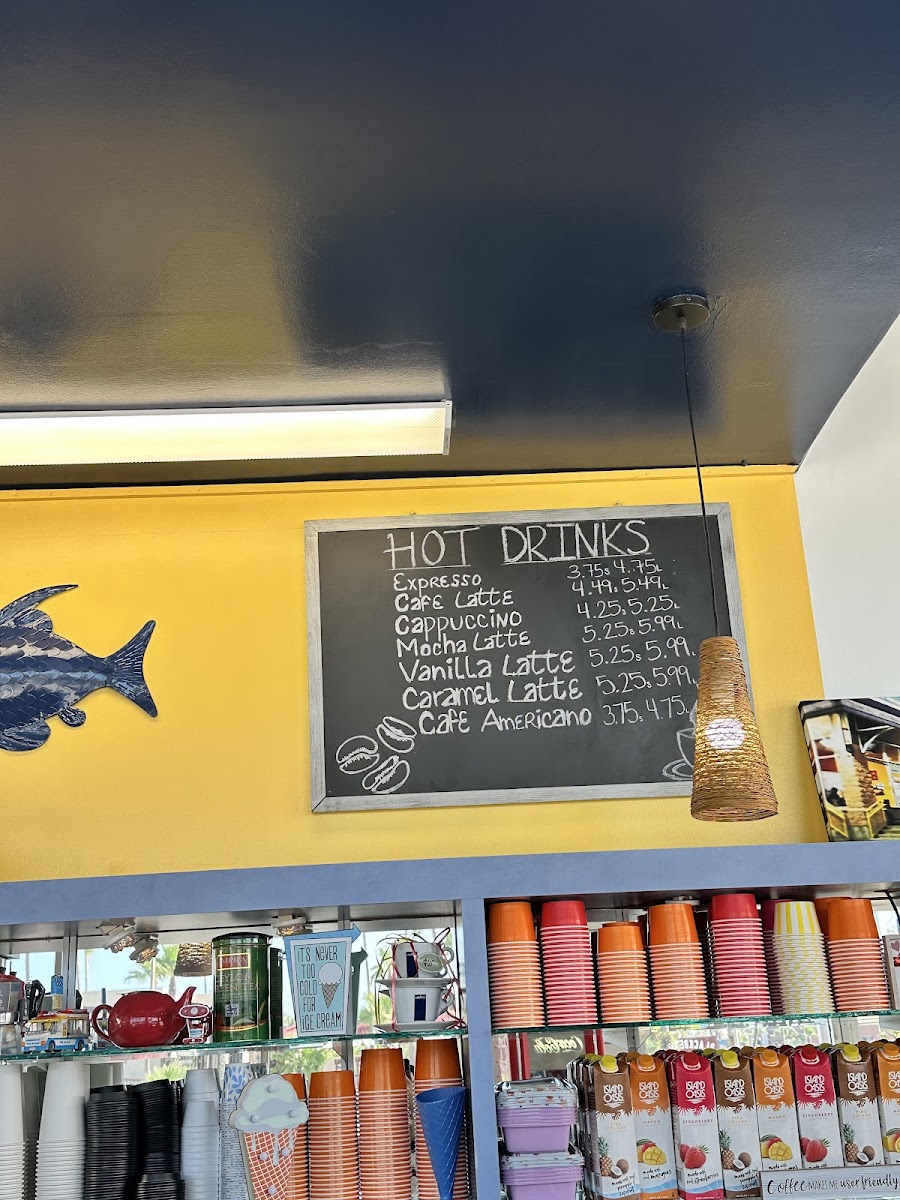 HOT DRINKS
Expresso 3.75s 4.75L
Cafe Latte 4.49s 5.49L
Cappuccino 4.25s 5.25L
Mocha Latte 5.25s 5.99L
Vanilla Latte 5.25s 5.99L
Caramel Latte 5.25s 5.99L
Cafe Americano 3.75s 4.75L
IT'S NEVER
TOO
COLD
FOR
ICE CREAM
ISLAND OASIS
ISLAND OASIS
MANGO
ISLAND OASIS
STRAWBERRY
ISLAND OASIS
ISLAND OASIS
MANGO
ISLAND OASIS
STRAWBERRY
ISLAND OASIS
Coffee MAKES ME user friendly